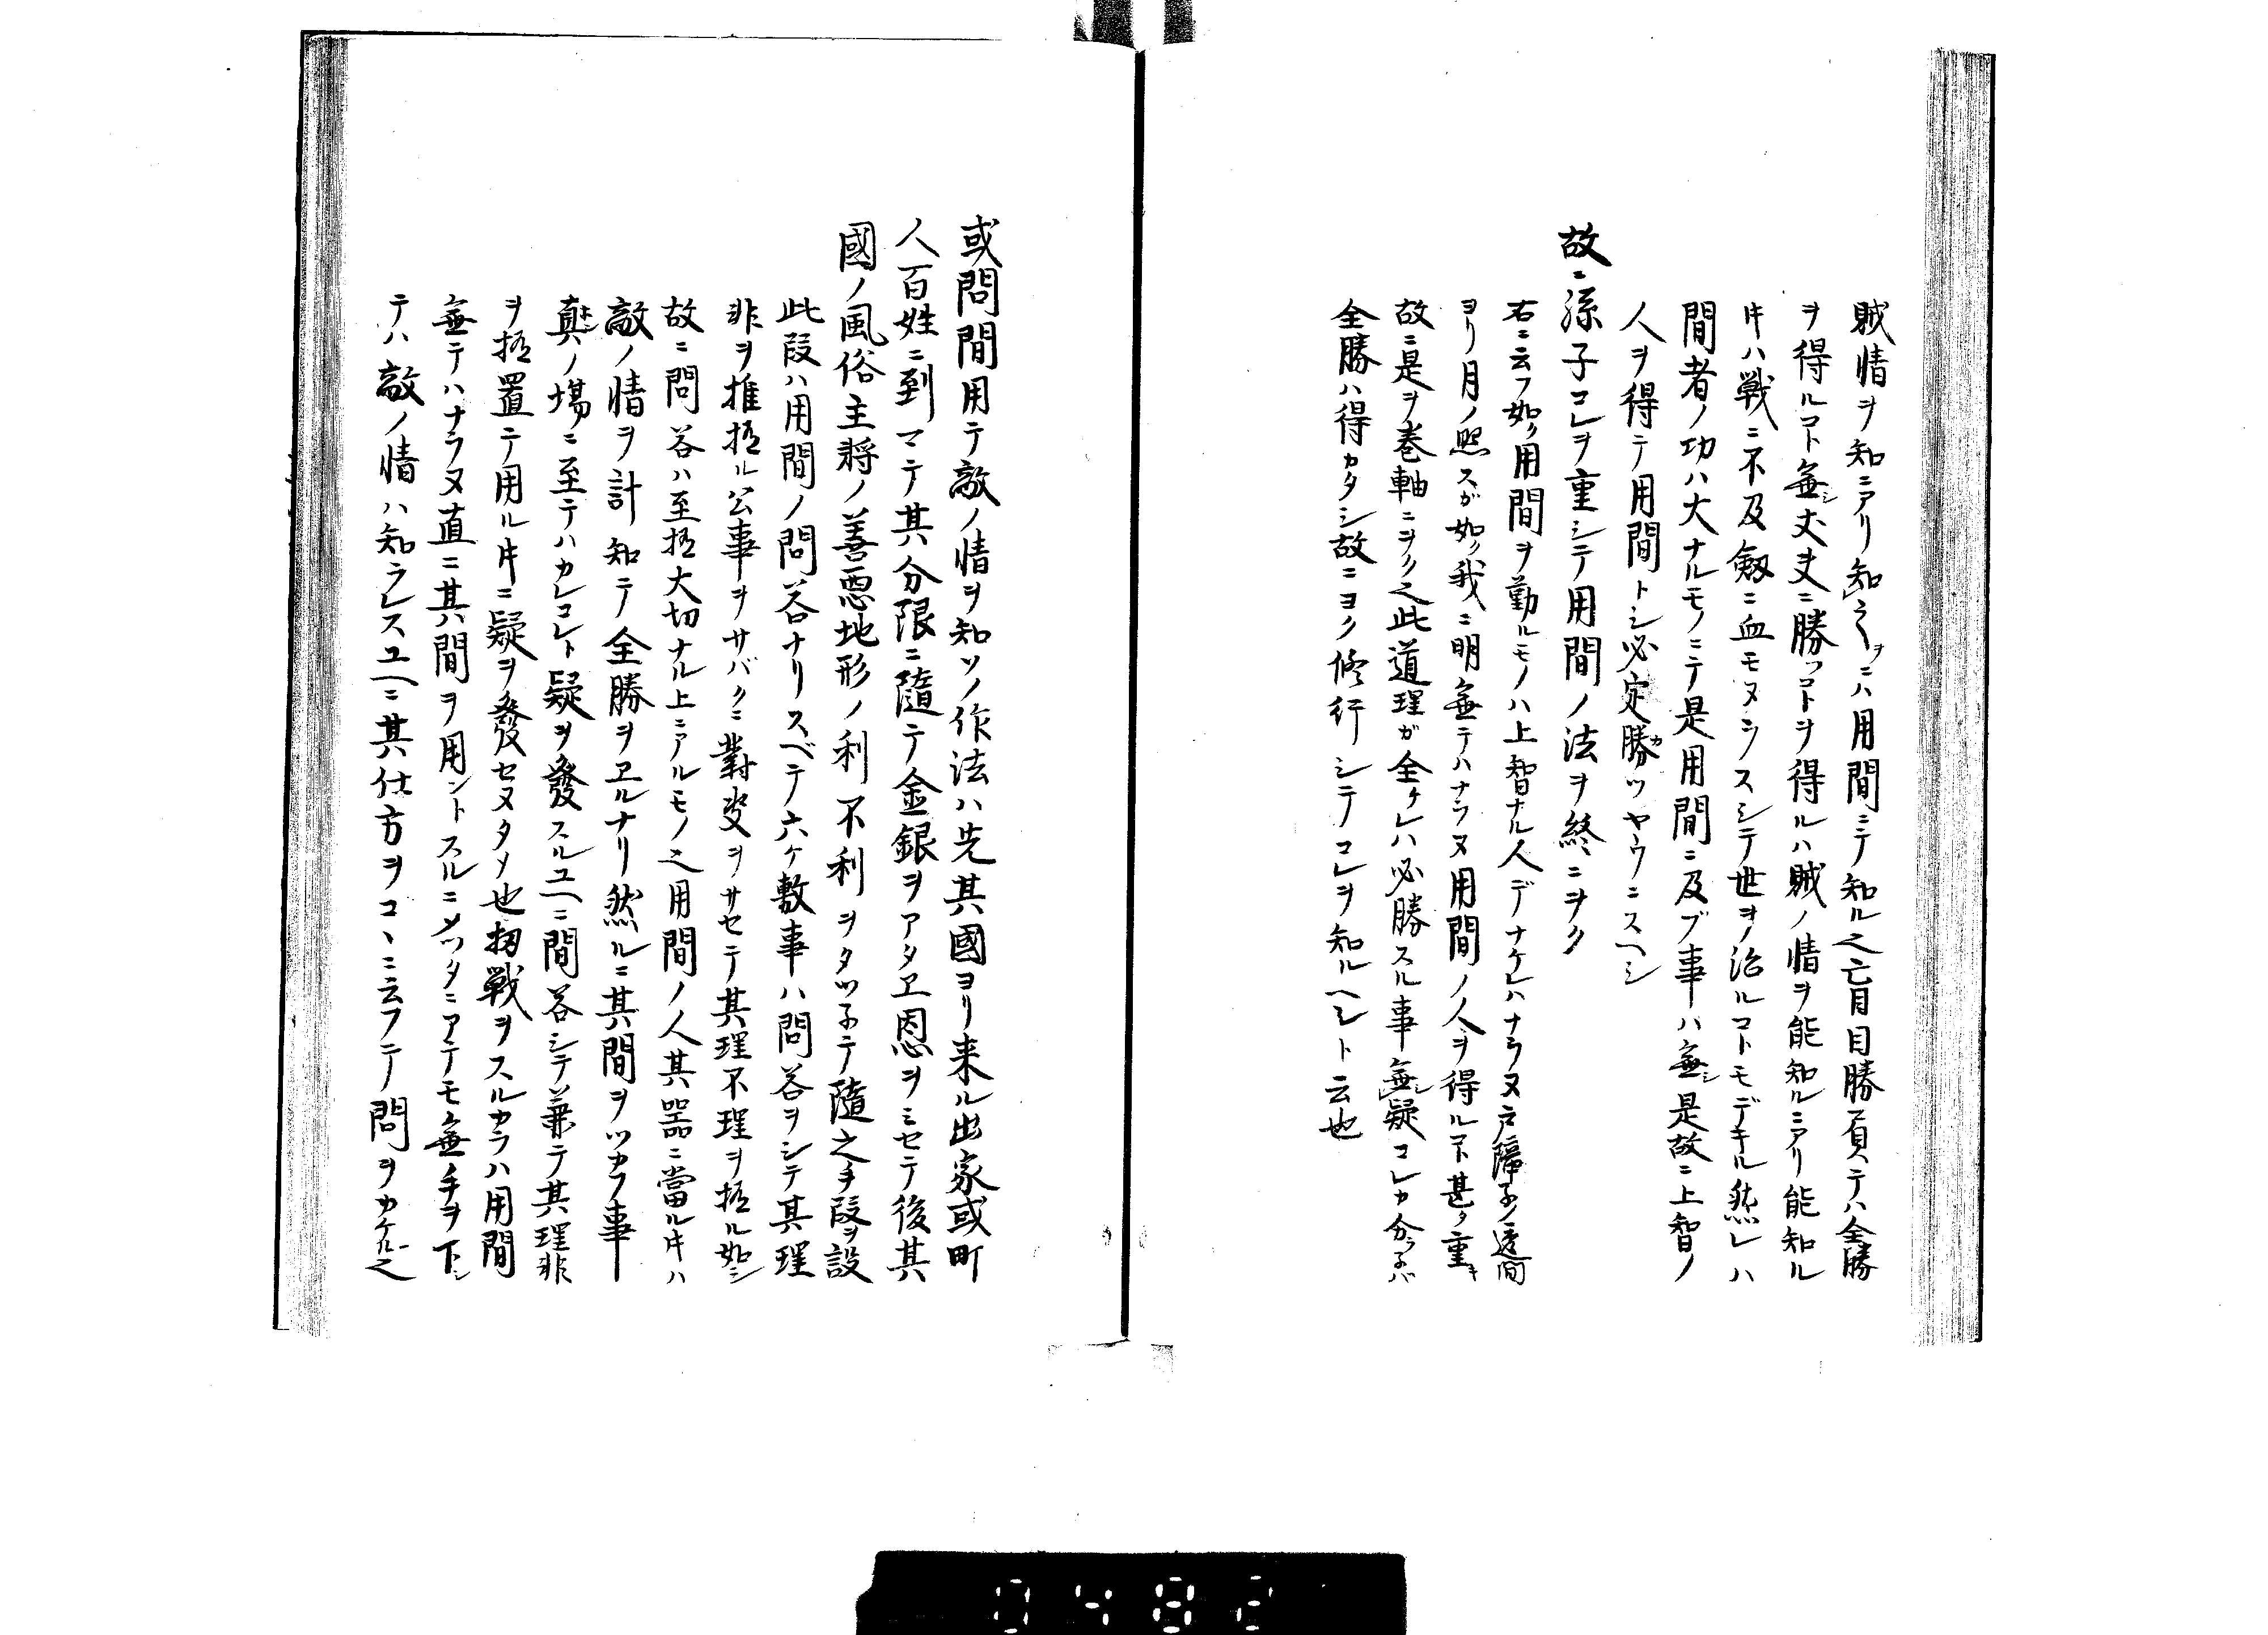 賊情ヲ知ニアリ知之ヲニハ用間ニテ知ル之亡目目勝負ニテハ全勝
ヲ得ルヿ無シ丈夫ニ勝ツヿヲ得ルハ賊ノ情ヲ能知ルニアリ能知ル
𪜈ハ戦ニ不及劔ニ血モヌラスシテ世ヲ治ルヿモデキル然レハ
間者ノ功ハ大ナルモノニテ是用間ニ及ブ事ハ無シ是故ニ上智ノ
人ヲ得テ用間トシ必定勝ツヤウニスヘシ
故ニ孫子コレヲ重シテ用間ノ法ヲ終ニヲク
右ニ云フ如ク用間ヲ勤ルモノハ上智ナル人デナケレハナラヌ戸障子ノ透間
ヨリ月ノ照スガ如ク我ニ明無テハナラヌ用間ノ人ヲ得ルヿ甚タ重キ
故ニ是ヲ巻軸ニヲク之此道理ガ全ケレハ必勝スル事無疑コレカ分ラ子バ
全勝ハ得カタシ故ニヨク修行シテコレヲ知ルヘシト云也
或問間用テ敵ノ情ヲ知ソノ作法ハ先其國ヨリ来ル出家或町
人百姓ニ到マテ其分限ニ隨テ金銀ヲアタヱ恩ヲミセテ後其
國ノ風俗主将ノ善悪地形ノ利不利ヲタツ子テ隨之手段ヲ設
此段ハ用間ノ問答ナリスベテ六ケ敷事ハ問答ヲシテ其理
非ヲ推極ル公事ヲサバクニ對决ヲサセテ其理不理ヲ極ル如シ
故ニ問答ハ至極大切ナル上ニアルモノ之用間ノ人其器ニ當ル𪜈ハ
敵ノ情ヲ計知テ全勝ヲヱルナリ然ルニ其間ヲツカフ事
真ノ塲ニ至テハカレコレト疑ヲ發スルユヘニ問答シテ兼テ其理非
ヲ極置テ用ル𪜈ニ疑ヲ發セヌタメ也扨戦ヲスルカラハ用間
無テハナラヌ直ニ其間ヲ用ントスルニメツタニアテモ無手ヲ下シ
テハ敵ノ情ハ知ラレスユヘニ其仕方ヲコヽニ云フテ問ヲカケル之